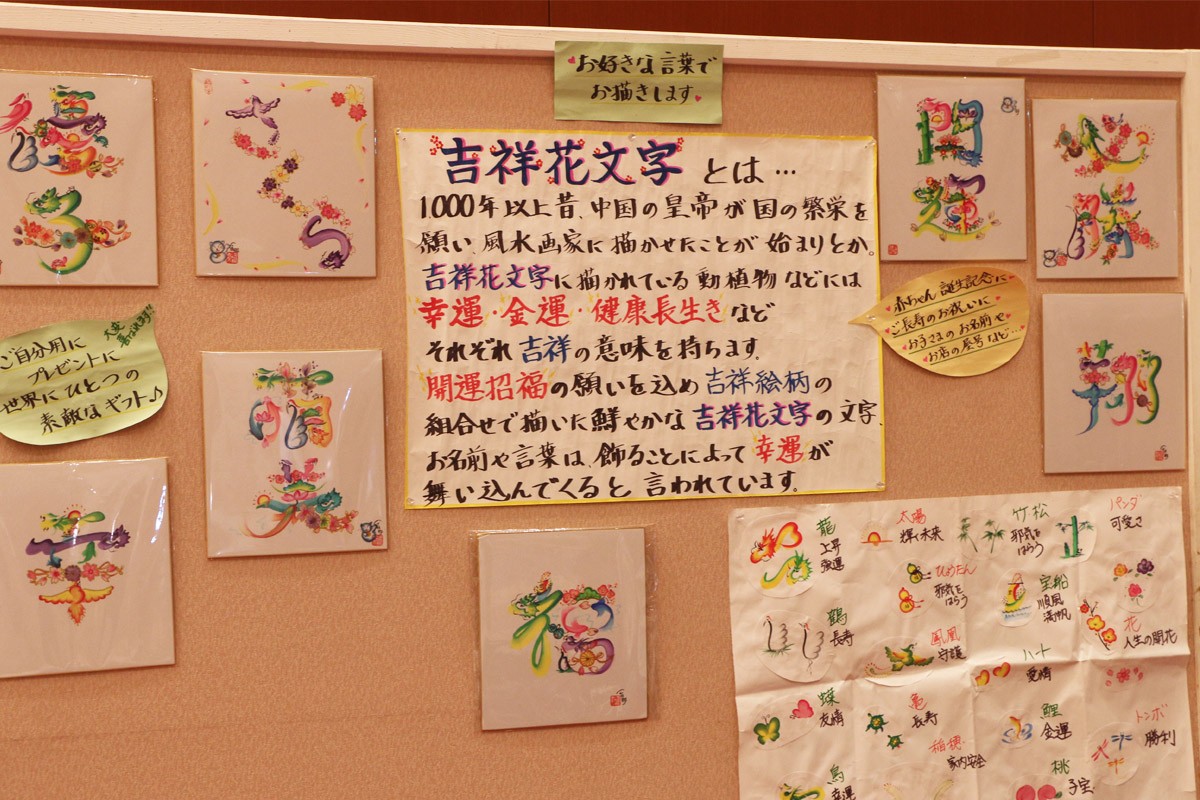 お好きな言葉で
お描きします
吉祥花文字とは…
1,000年以上昔、中国の皇帝が国の繁栄を
願い、風水画家に描かせたことが始まりとか。
吉祥花文字に描かれている動植物などには
幸運・金運・健康長生きなど
それぞれ吉祥の意味を持ちます。
開運招福の願いを込め吉祥絵柄の
組合せで描いた鮮やかな吉祥花文字の文字。
お名前や言葉は、飾ることによって幸運が
舞い込んでくると言われています。
ご自分用に
プレゼントに
世界にひとつの
素敵なギフト♪
赤ちゃん誕生記念に
ご長寿のお祝いに
お子さまのお名前や
お店の屋号など…
さくら
明美
福
龍
上昇
強運
太陽
輝く未来
竹 松
邪気を
はらう
パンダ
可愛さ
鶴
長寿
ひょうたん
邪気を
はらう
宝船
順風
満帆
花
人生の開花
鳳凰
守護
ハート
愛情
蝶
友情
亀
長寿
鯉
金運
トンボ
勝利
稲穂
家内安全
鳥
幸運
桃
子宝